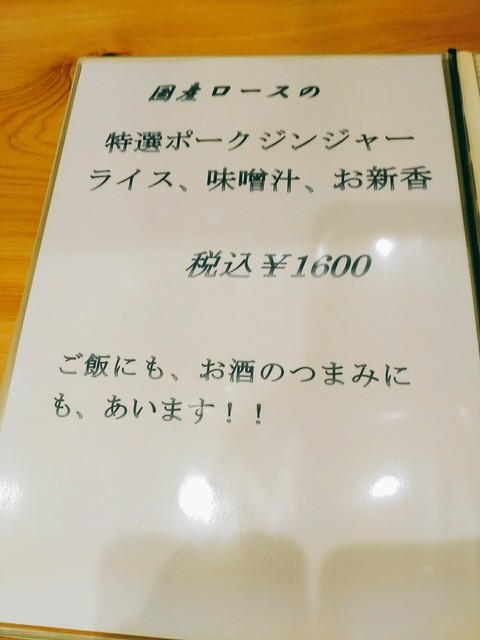 国産ロースの
特選ポークジンジャー
ライス、味噌汁、お新香
税込￥1600
ご飯にも、お酒のつまみに
も、あいます！！